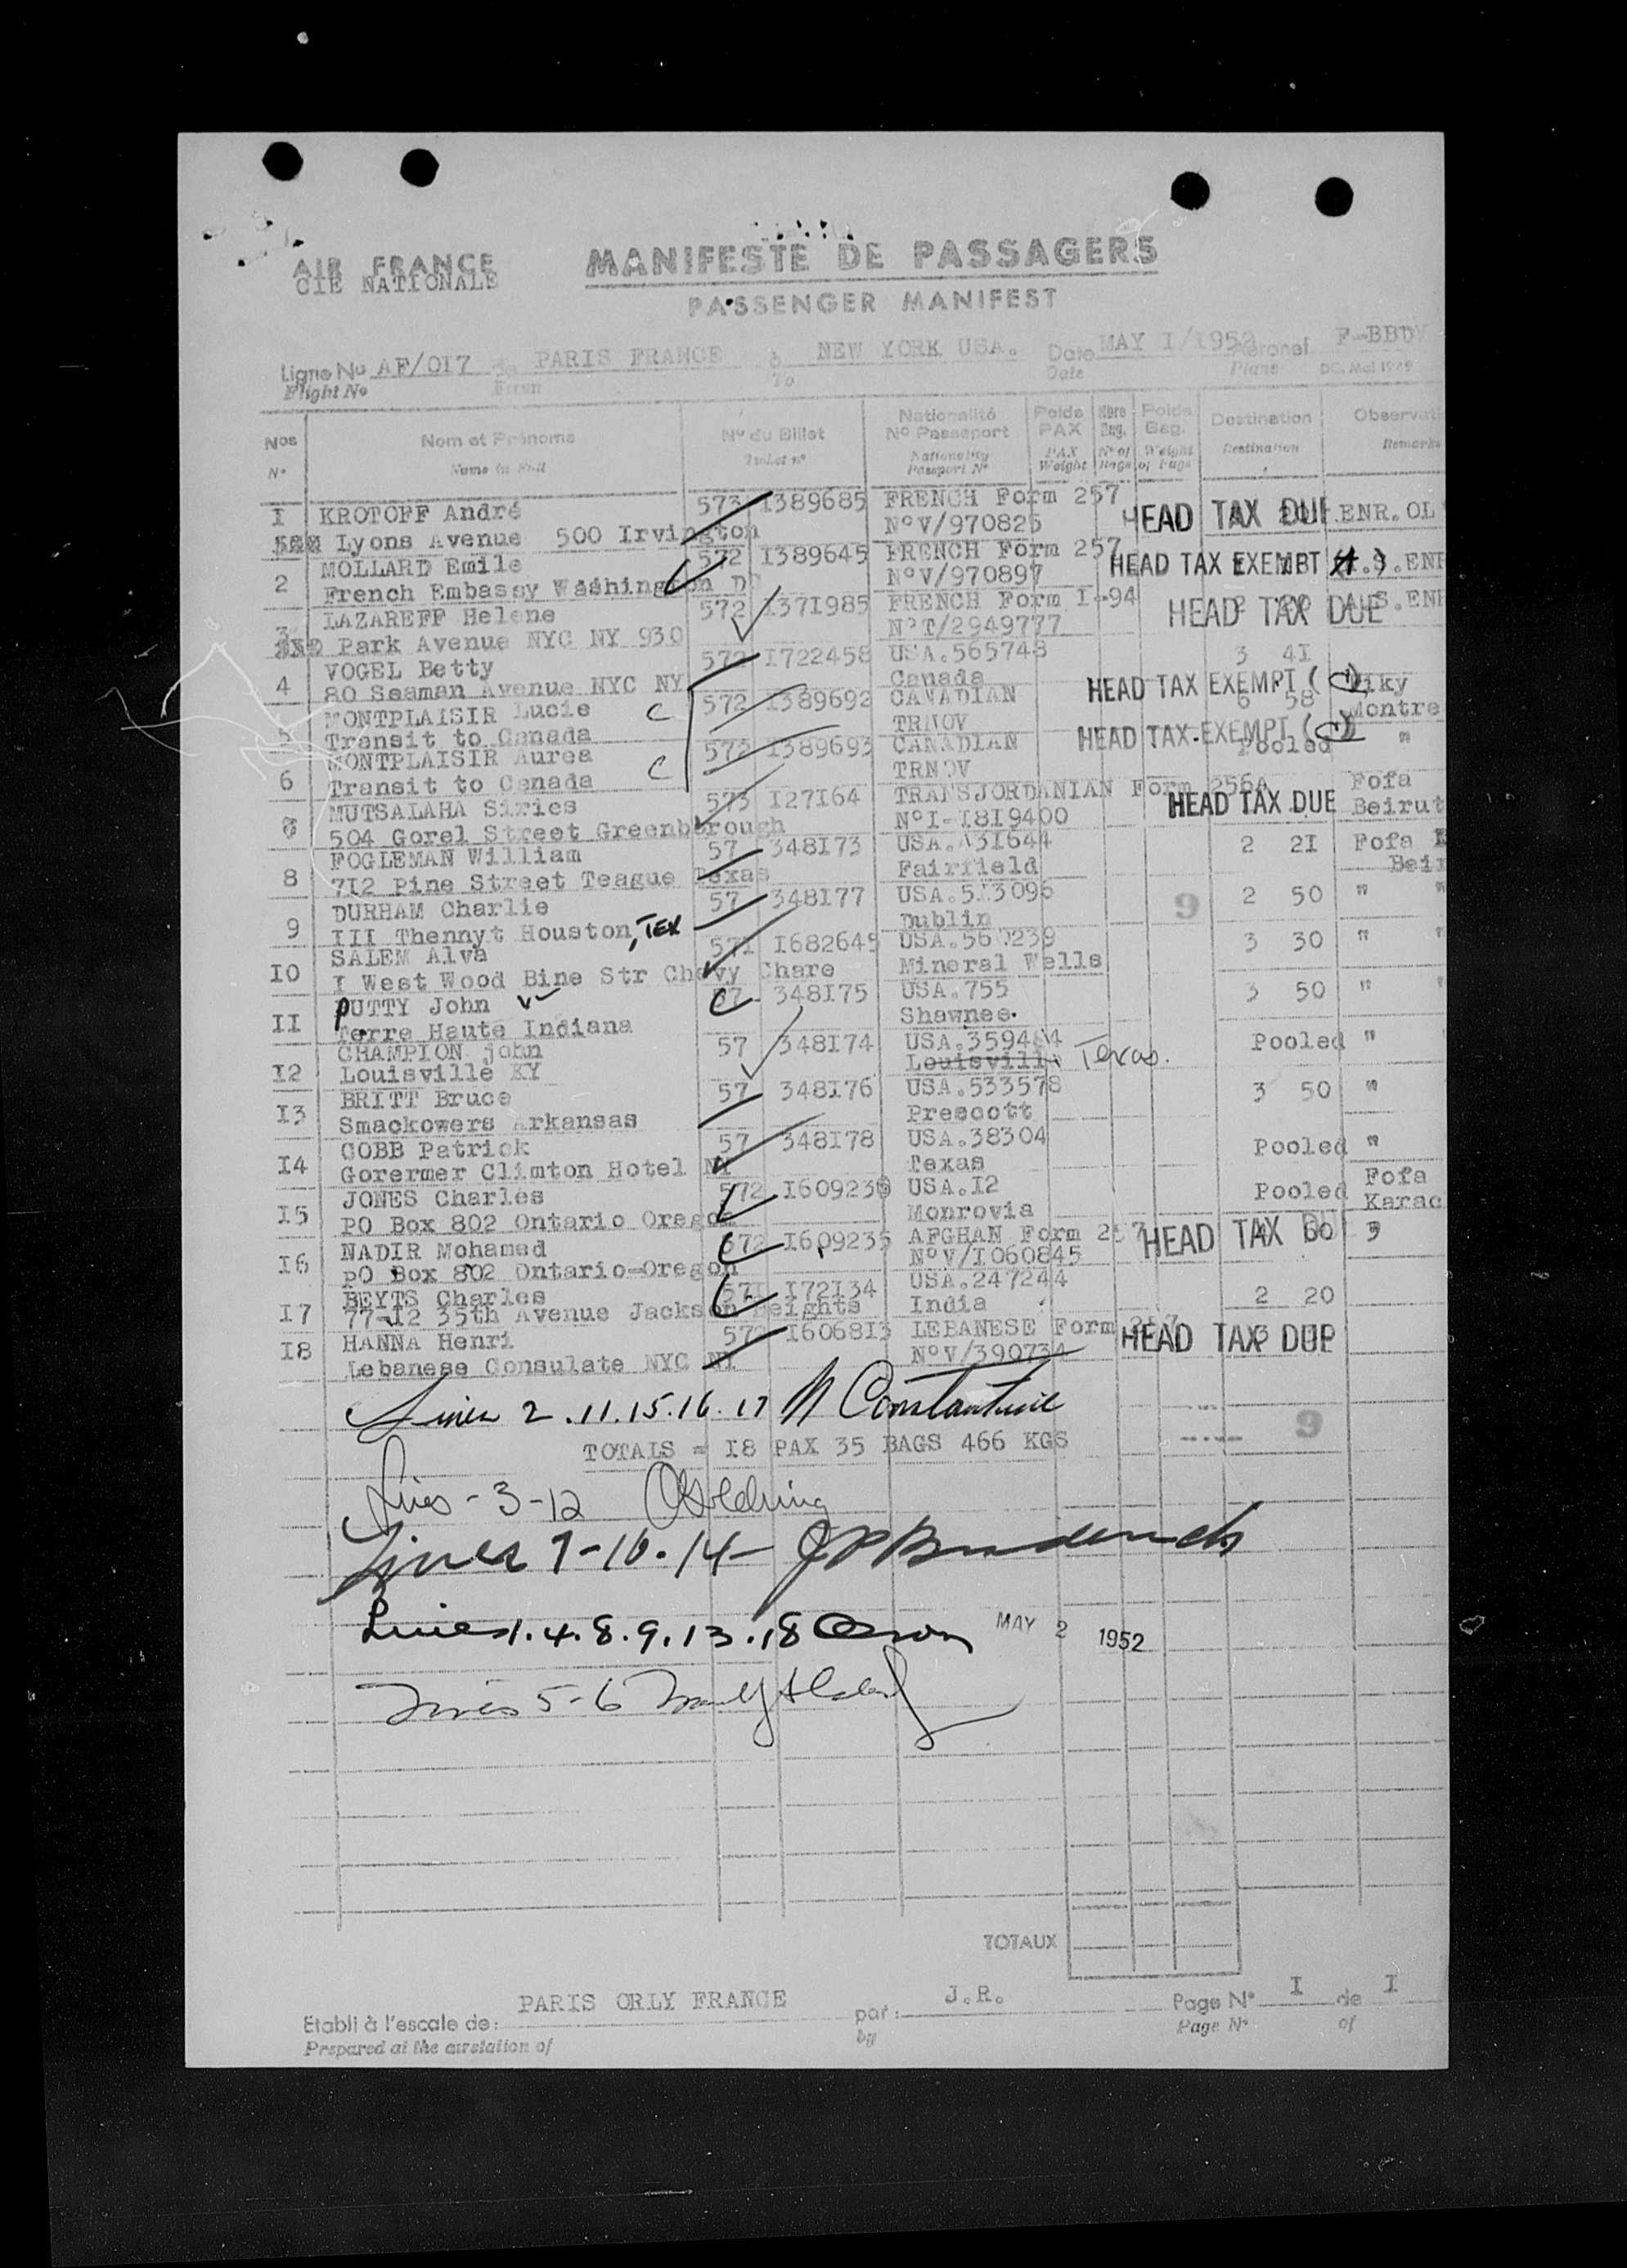 AIR FRANCE
CIE NATIONALE
MANIFESTE DE PASSAGERS
PASSENGER MANIFEST
Ligne No AF/OI7 de PARIS FRANCE à NEW YORK USA. Date MAY I/1952 F-BBD
Flight No From To Date Plane DC. Mai 1949
Nos Nom et Prénoms No du Billet Nationalité No Passeport Poids PAX Nbre Bag. Poids Bag. Destination Observati
No Name in Full Ticket no Nationality Passport No PAX Weight No of Bags Weight of Bags Destination Remarks
I KROTOFF André 573 I389685 FRENCH Form 257 HEAD TAX DUE ENR. OL
Lyons Avenue 500 Irvington NoV/970825
2 MOLLARD Emile 572 I389645 FRENCH Form 257 HEAD TAX EXEMPT .S.ENR
French Embassy Washington D NoV/970897
3 LAZAREFF Helene 572 I37I985 FRENCH Form I-94 HEAD TAX DUE .S.ENR
Park Avenue NYC NY 930 NoT/2949777
4 VOGEL Betty 572 I722458 USA.565748 3 4I
80 Seaman Avenue NYC NY Canada
5 MONTPLAISIR Lucie C 572 I389692 CANADIAN HEAD TAX EXEMPT 6 58 Montre
Transit to Canada TRNOV
6 MONTPLAISIR Aurea C 572 I389693 CANADIAN HEAD TAX EXEMPT Pooled "
Transit to Canada TRNOV
MUTSALAHA Siries 573 I27I64 TRANSJORDANIAN Form 256A HEAD TAX DUE Fofa
504 Gorel Street Greenborough NoI-I8I9400 Beirut
8 FOGLEMAN William 57 348I73 USA. 3I644 2 2I Fofa
7I2 Pine Street Teague Texas Fairfield Beir
9 DURHAM Charlie 57 348I77 USA.5I3096 9 2 50 " "
III Thennyt Houston, TEX Dublin
IO SALEM Alva 57I I682645 USA.560239 3 30 " "
I West Wood Bine Str Chevy Chare Mineral Wells
II PUTTY John 57 348I75 USA.755 3 50 " "
Terre Haute Indiana Shawnee.
I2 CHAMPION john 57 348I74 USA.359484 Pooled "
Louisville KY Louisville Texas.
I3 BRITT Bruce 57 348I76 USA.533578 3 50 "
Smackowers Arkansas Prescott
I4 COBB Patrick 57 348I78 USA.38304 Pooled "
Gorermer Climton Hotel NY Texas
I5 JONES Charles 572 I609236 USA.I2 Pooled Fofa
PO Box 802 Ontario Oregon Monrovia Karac
I6 NADIR Mohamed 572 I609235 AFGHAN Form 257 HEAD TAX "
PO Box 802 Ontario-Oregon NoV/I060845
I7 BEYTS Charles 57I I72I34 USA.247244 2 20
77-I2 35th Avenue Jackson Heights India
I8 HANNA Henri 572 I6068I3 LEBANESE Form 257 HEAD TAX DUE
Lebanese Consulate NYC NY NoV/390734
Lines 2.11.15.16.17 N Constantine
9
TOTALS = I8 PAX 35 BAGS 466 KGS
Lines - 3 - 12
Lines 7-10.14-
Lines 1.4.8.9.13.18 MAY 2 1952
Lines 5-6
TOTAUX
Etabli à l'escale de: PARIS ORLY FRANCE par: J.R. Page No I de I
Prepared at the airstation of by Page No of